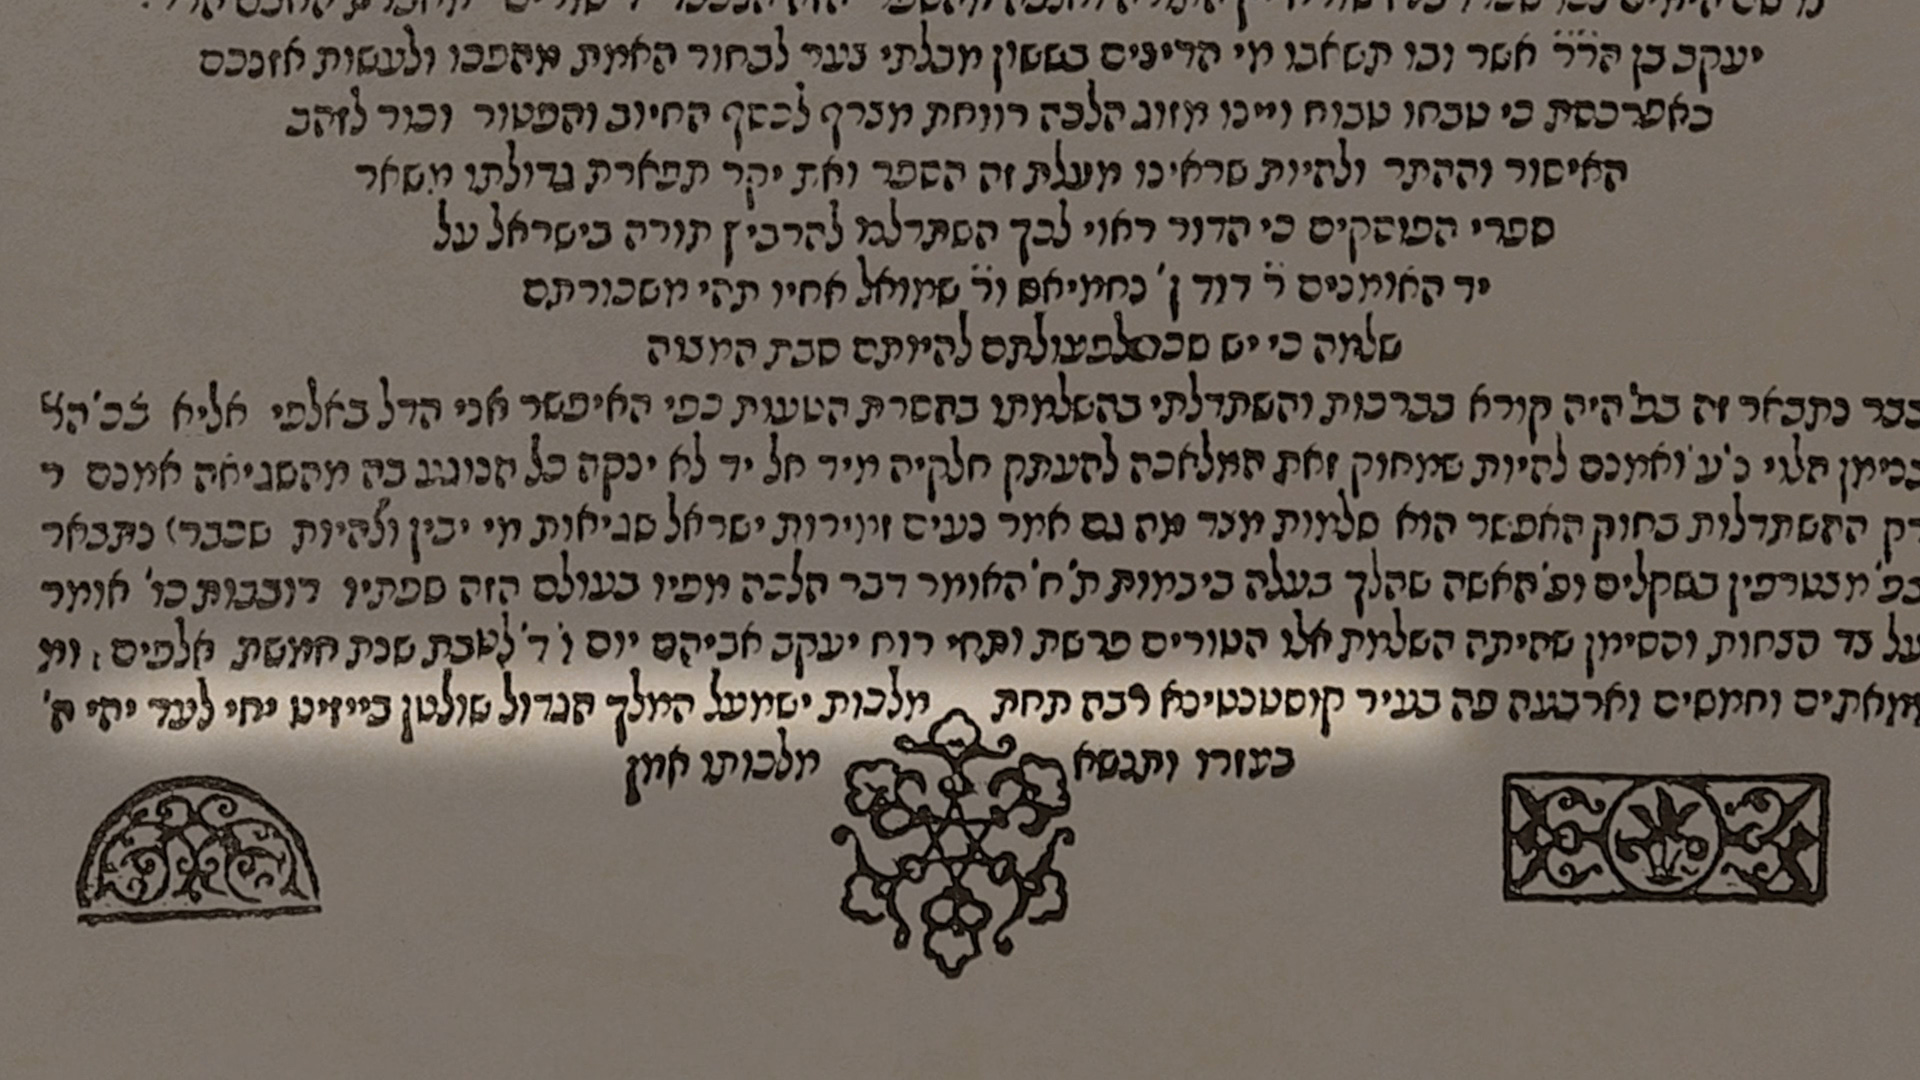 יעקב בן הר״ר אשר ובו תשאבו מי הדיצים בששון מבלתי צער לבחור האמת מהפכו ולעשות אזנכם
כאפרכסת כי טבחו טבוח ויינו מזוג הלכה רווחת מצרף לכסף החיוב והפטור וכור לזהב
האיסור וההתר ולהיות שראינו מעלת זה הספר ואת יקר תפארת גדולתו משאר
ספרי הפוסקים כי הדור ראוי לכך השתדלנו להרביץ תורה בישראל על
יד האומנים ר׳ דוד ן׳ נחמיאש ור׳ שמואל אחיו תהי משכורתם
שלמה כי יש שכר לפעולתם להיותם סבת המצוה
כבר נתבאר זה בפ׳ היה קורא בברכות והשתדלתי בהשלמתו בהסרת הטעות כפי האיפשר אני הדל באלפי אליא
בנימן הלוי נ׳ע׳ ואמנם להיות שמחוק זאת המלאכה להעתק חלקיה מיד אל יד לא ינקה כל הנוגע בה מהשגיאה אמנם
רק ההשתדלות בחוק האפשר הוא שלמות מצד מה גם אמר נעים זמירות ישראל שגיאות מי יבין ולהיות שכבר נתבאר
בפ׳ מצטרפין בשקלים ופ׳ האשה שהלך בעלה ביבמות ת׳ח׳ האומר דבר הלכה מפיו בעולם הזה שפתיו דובבות כו׳ אומר
על צד הנחות והסימן שהיתה השלמת אלו הטורים פרשת ותחי רוח יעקב אביהם יום ו׳ ד׳ לטבת שנת חמשת אלפים
ומאתים וחמשים וארבעה פה בעיר קוסטנטינא רבה תחת מלכות ישמעל המלך הגדול שולטן בייזיט יחי לעד יהי ה׳
בעזרו ותנשא מלכותו אמן